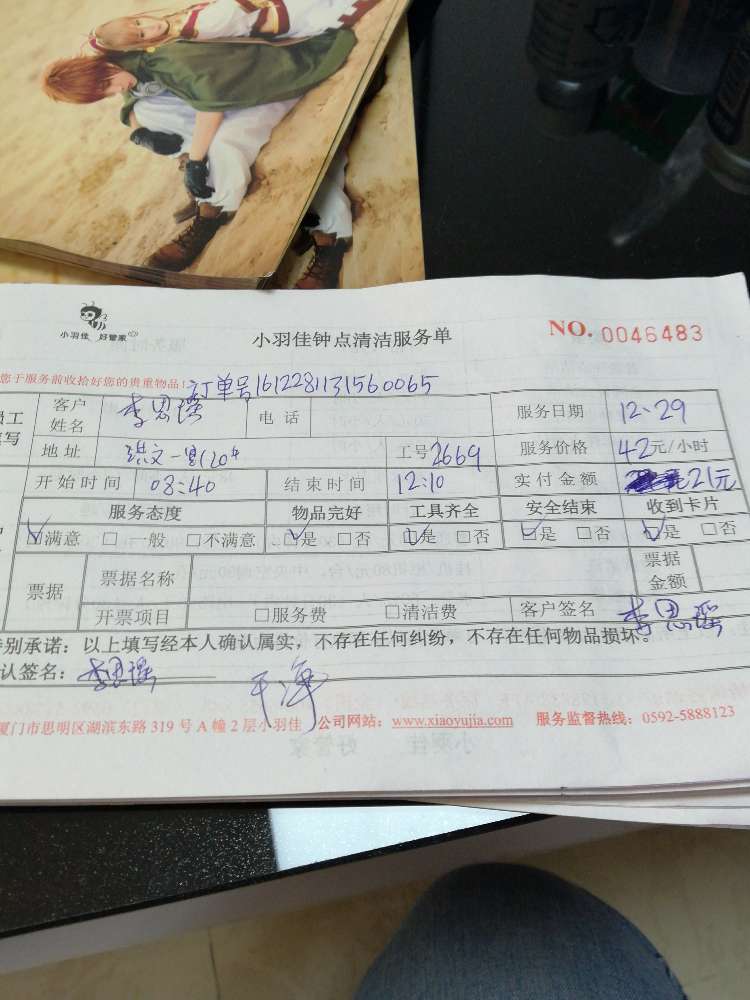 小羽佳 好管家
小羽佳钟点清洁服务单
NO. 0046483
您于服务前收拾好您的贵重物品！订单号1612281131560065
员工 客户姓名 李思瑶 电话 服务日期 12.29
填写 地址 琪文一里120# 工号2669 服务价格 42元/小时
开始时间 08:40 结束时间 12:10 实付金额 21元
服务态度 物品完好 工具齐全 安全结束 收到卡片
☑满意 □一般 □不满意 ☑是 □否 ☑是 □否 ☑是 □否 ☑是 □否
票据 票据名称 票据金额
开票项目 □服务费 □清洁费 客户签名 李思瑶
特别承诺：以上填写经本人确认属实，不存在任何纠纷，不存在任何物品损坏。
认签名：李思瑶
干净
厦门市思明区湖滨东路 319 号 A 幢 2 层小羽佳 公司网站：www.xiaoyujia.com 服务监督热线：0592-5888123